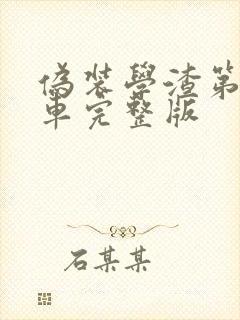 偽裝學渣第
車完整版
石某某